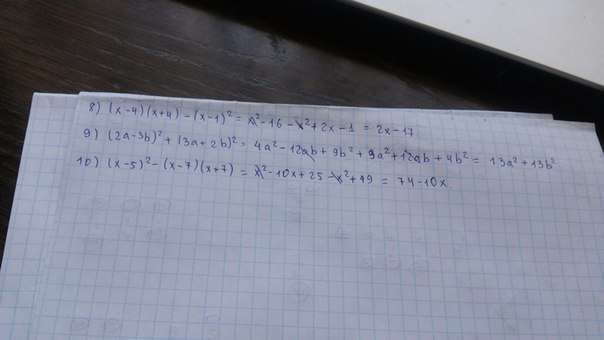 8) (x-4)(x+4)-(x-1)² = x²-16-x²+2x-1 = 2x-17
9) (2a-3b)²+(3a+2b)² = 4a²-12ab+9b²+9a²+12ab+4b² = 13a²+13b²
10) (x-5)²-(x-7)(x+7) = x²-10x+25-x²+49 = 74-10x